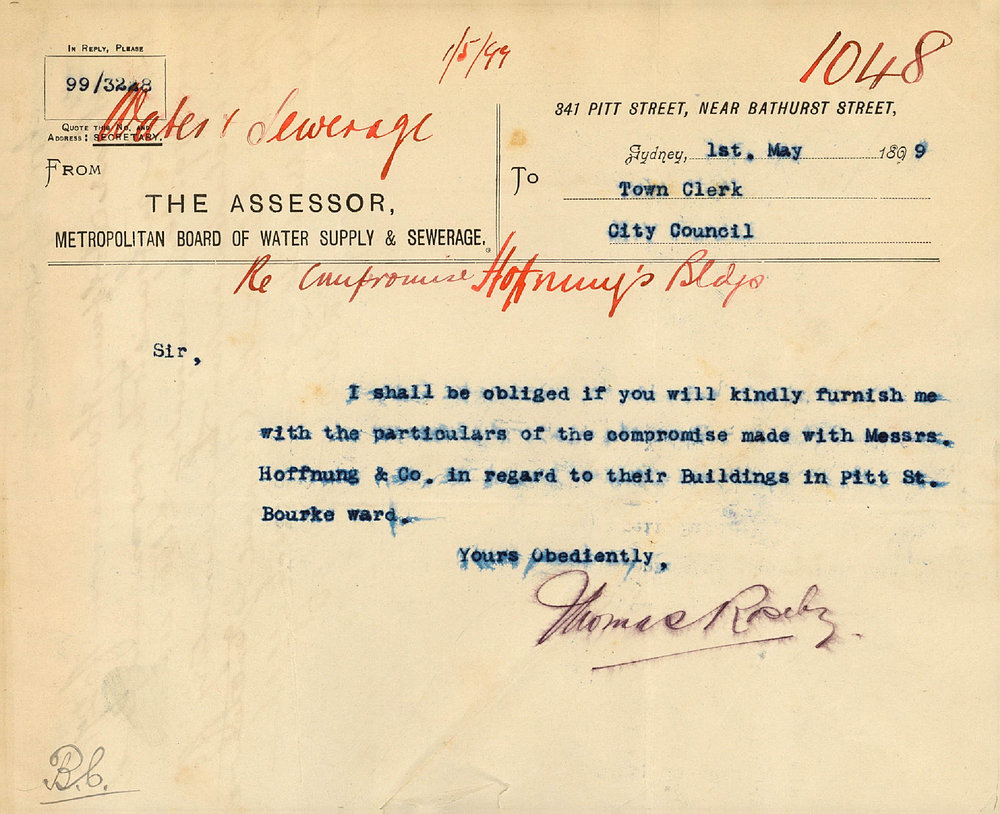 In Reply, Please
99/3228
Quote this No. and
Address: SECRETARY.
1/5/99
1048
Water & Sewerage
341 PITT STREET, NEAR BATHURST STREET,
Sydney, 1st. May 1899
From
THE ASSESSOR,
METROPOLITAN BOARD OF WATER SUPPLY & SEWERAGE.
To
Town Clerk
City Council
Re Compromise Hoffnung's Bldgs
Sir,
I shall be obliged if you will kindly furnish me
with the particulars of the compromise made with Messrs.
Hoffnung & Co. in regard to their Buildings in Pitt St.
Bourke ward.
Yours Obediently,
Thomas Roseby.
B.C.